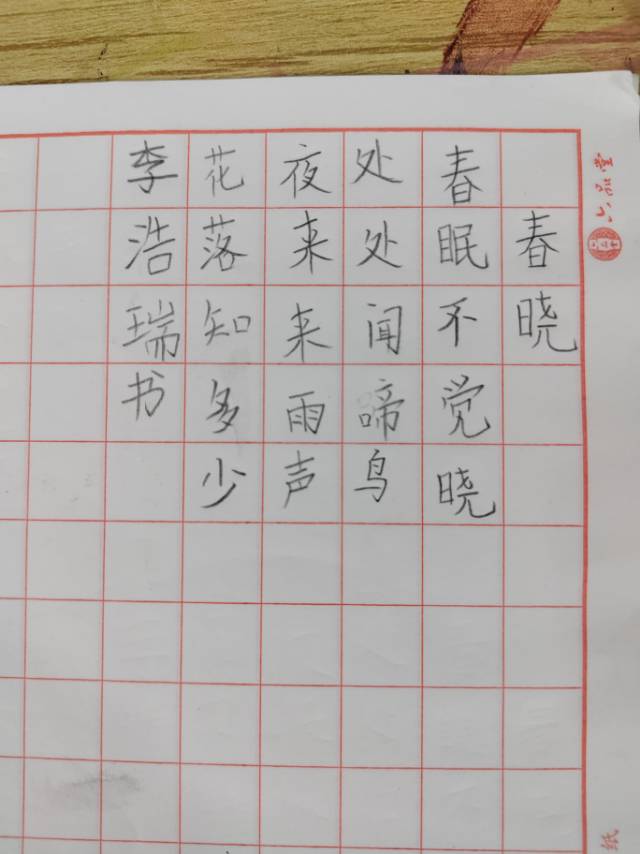 春晓
春眠不觉晓
处处闻啼鸟
夜来来雨声
花落知多少
李浩瑞书
六品堂
纸